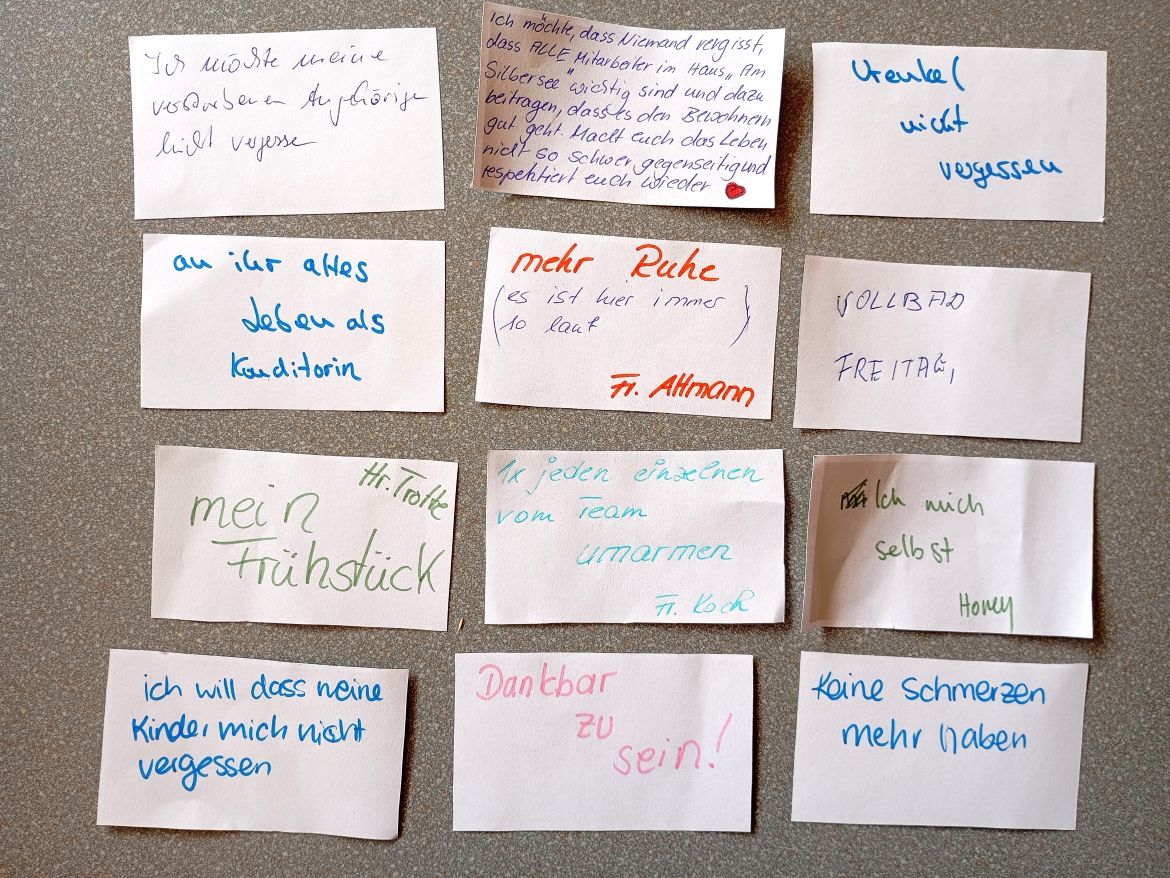 Ich möchte meine
verstorbenen Angehörige
nicht vergesse
Ich möchte, dass Niemand vergisst,
dass ALLE Mitarbeiter im Haus „Am
Silbersee" wichtig sind und dazu
beitragen, dass es den Bewohnern
gut geht. Macht euch das Leben
nicht so schwer gegenseitig und
respektiert euch wieder
Urenkel
nicht
vergessen
an ihr altes
Leben als
Konditorin
mehr Ruhe
(es ist hier immer
so laut)
Fr. Altmann
VOLLBAD
FREITAG,
Hr. Trotte
mein
Frühstück
1x jeden einzelnen
vom Team
umarmen
Fr. Koch
Ich mich
selbst
Honey
ich will dass neine
Kinder mich nicht
vergessen
Dankbar
zu
sein!
Keine Schmerzen
mehr haben